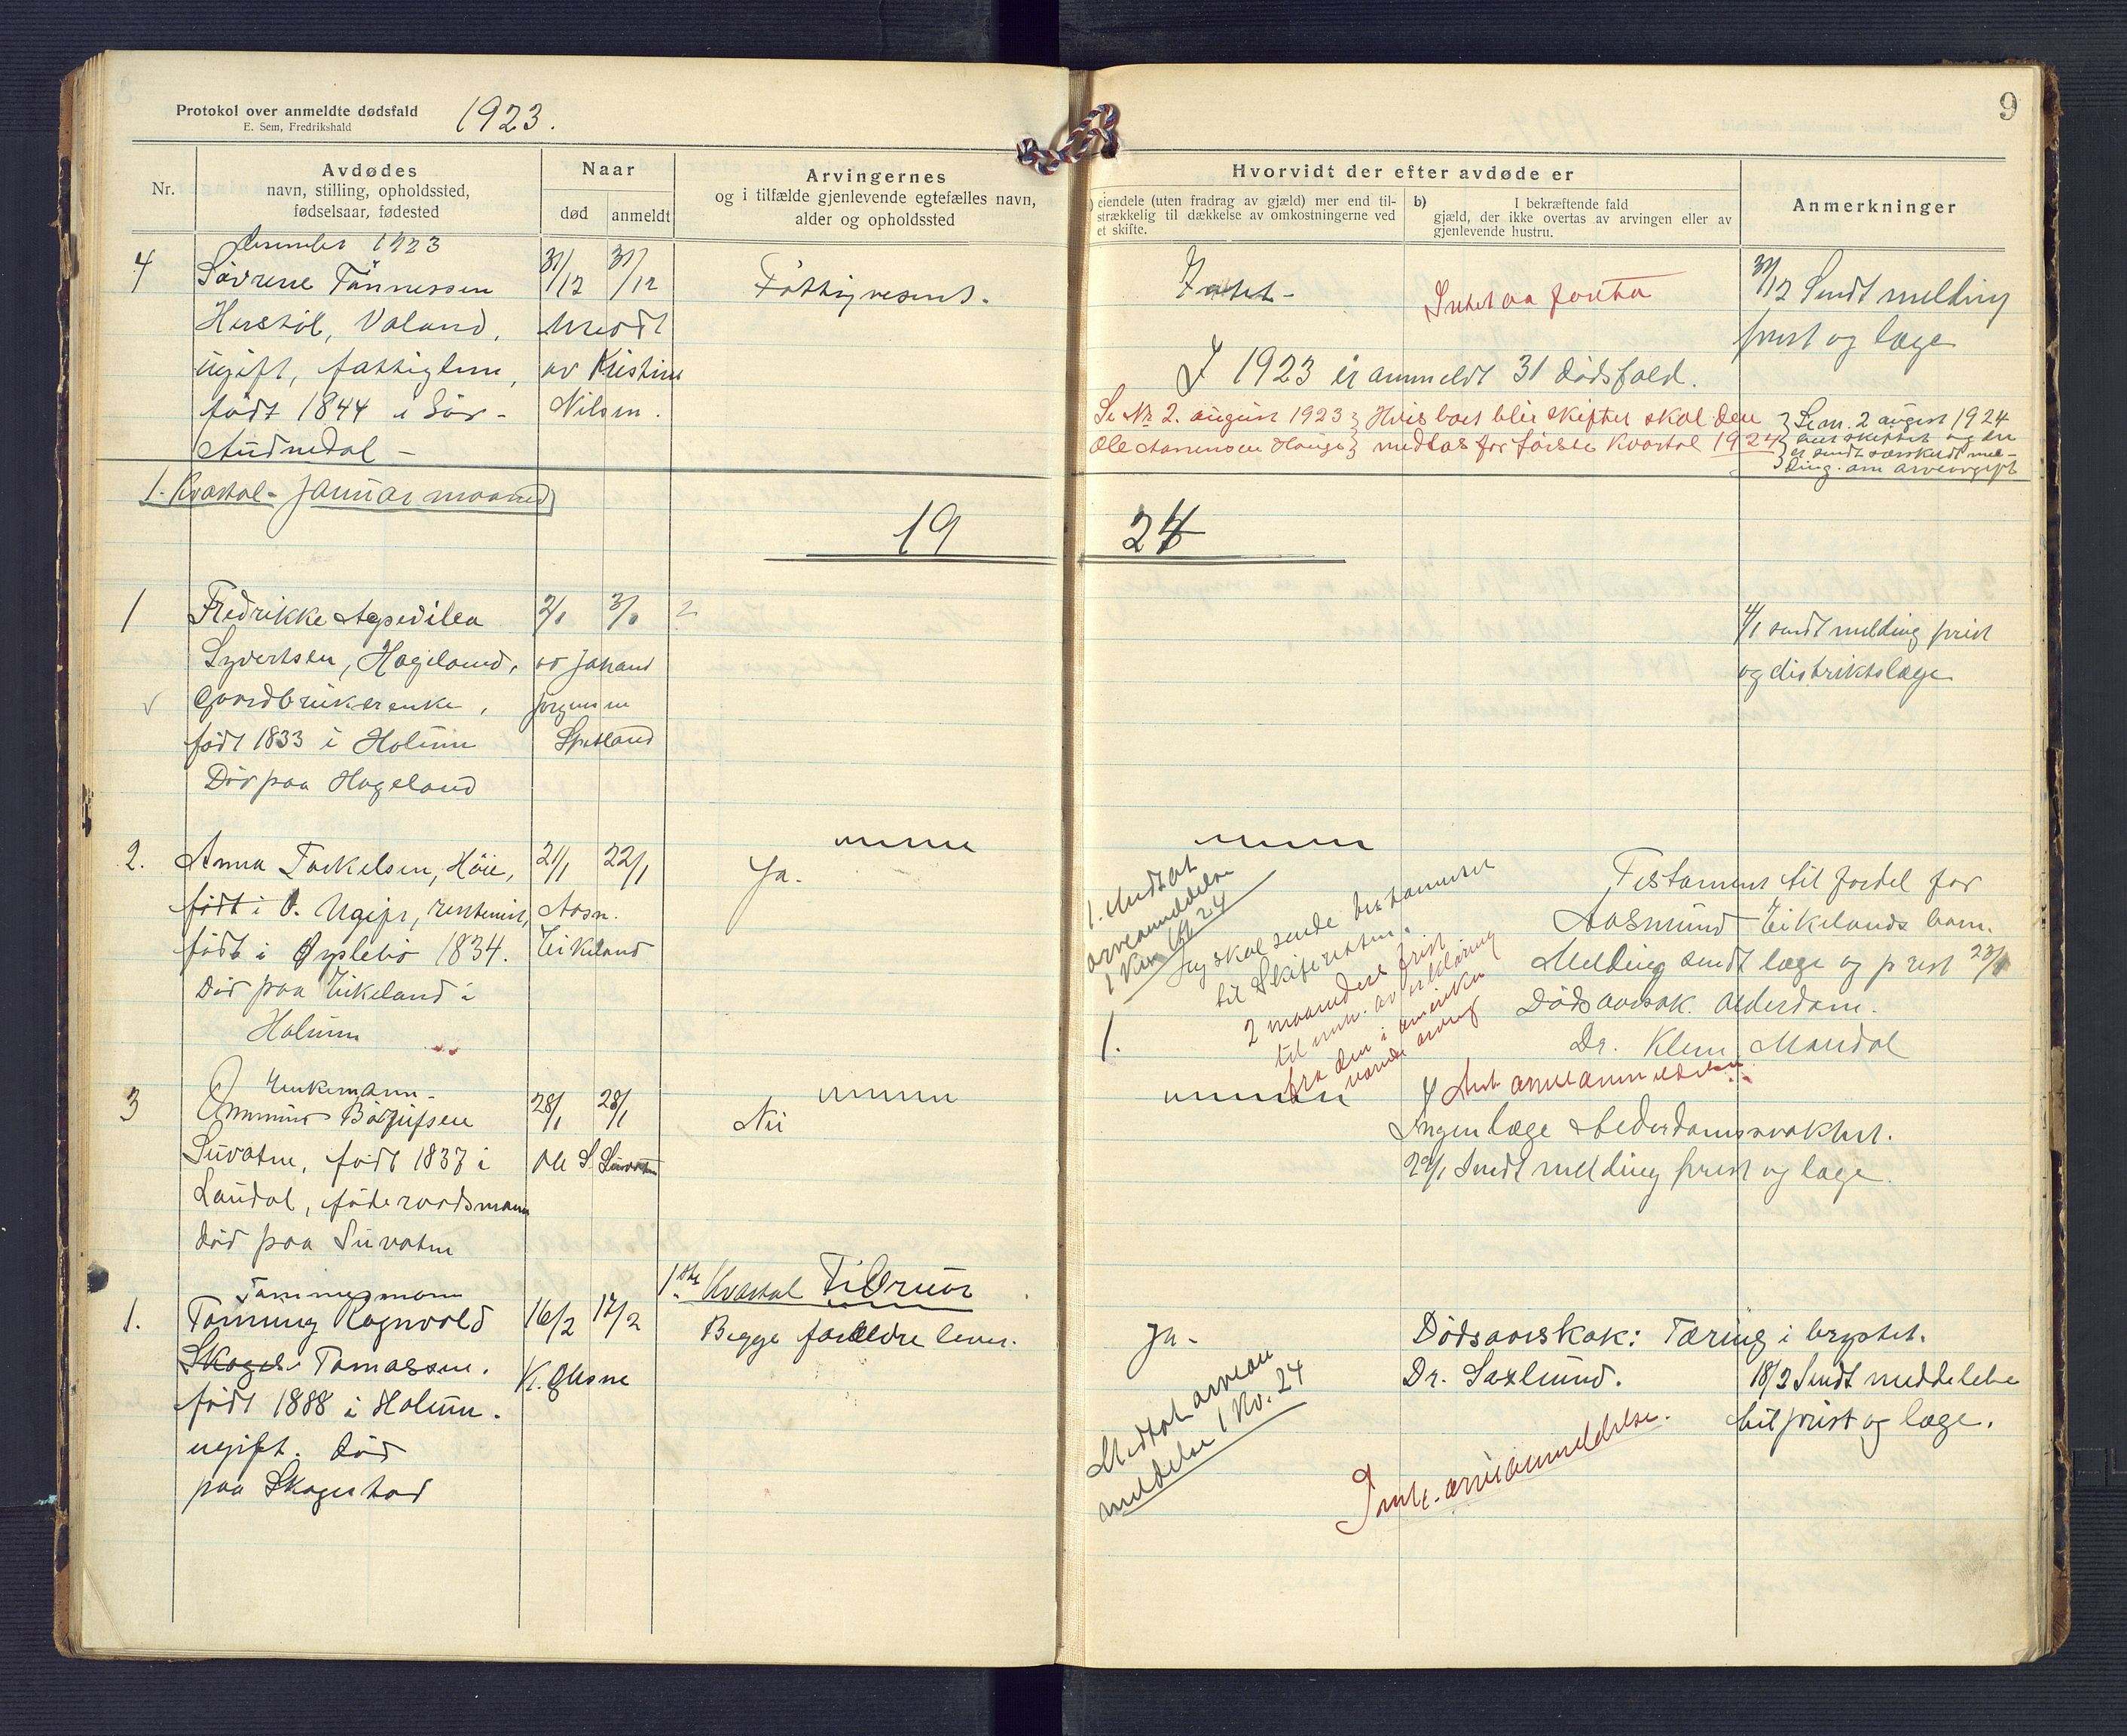 Protokol over anmeldte dødsfald
E. Sem, Fredrikshald
1923.
9
Nr.
Avdødes
navn, stilling, opholdssted,
fødselsaar, fødested
Naar
død
anmeldt
Arvingernes
og i tilfælde gjenlevende egtefælles navn,
alder og opholdssted
Hvorvidt der efter avdøde er
eiendele (uten fradrag av gjæld) mer end til-
strækkelig til dækkelse av omkostningerne ved
et skifte.
b) I bekræftende fald
gjæld, der ikke overtas av arvingen eller av
gjenlevende hustru.
Anmerkninger
december 1923
4
Sövrene Tönnessen
Herstöl, Valand,
ugift, fattiglem,
født 1844 i Sör-
Audnedal -
31/12
31/12
av Kristine
Nilsen.
Fattigvesenet.
Intet -
Intet aa forta
31/12 Sendt melding
prest og læge
I 1923 er anmeldt 31 dødsfald.
Se Nr. 2. august 1923
Hvis boet blir skiftet skal den
medtas for første kvartal 1924
Se nr. 2 august 1924
ding. om arveavgift
1. Kvartal - Januar maaned
19 24
1
Fredrikke
Syvertsen, Hageland,
gaardbrukerenke,
født 1833 i Holum
Död paa Hageland
2/1
3/1
2
4/1 sendt melding prest
og distriktslæge
2.
Anna Torkelsen, Höie,
født i Ø. Ugift,
født i Øyslebö 1834.
Död paa Eikeland i
Holum
21/1
22/1
Aasn.
Eikeland
Ja.
1. Medtat
arveanmeldelse
1 Kv. 24
Jeg skal sende testamentet
til Skifteretten.
2 maaneders frist
til av erklæring
fra den i amerika
værende arving
1.
Testament til fordel for
Aasmund Eikelands barn.
Melding sendt læge og prest 23/1
Dödsaarsak. Alderdom.
Dr. Klem, Mandal
arveanmeldelse
3
Enkemann -
Suvatne, født 1837 i
Laudal, föderaadsmann
död paa Suvatne
28/1
28/1
Ole S. Suvatne
Nei
Ingen læge Alderdomssvakhet.
29/1 Sendt melding prest og læge.
1ste Kvartal Februar
1.
Tömmermann
Tönning Ragnvald
Tomassen.
født 1888 i Holum.
ugift. död
paa Skagestad
16/2
17/2
Begge forældre lever.
Ja -
Medtat arvean
meldelse 1 Kv. 24
Dödsaarskak: Tæring i brystet.
Dr. Saxlund.
18/2 Sendt meddelelse
til prest og læge.
arveanmeldelse.